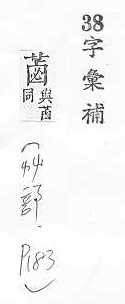 38
字彙補
與茜
同
(艸部,
P183)